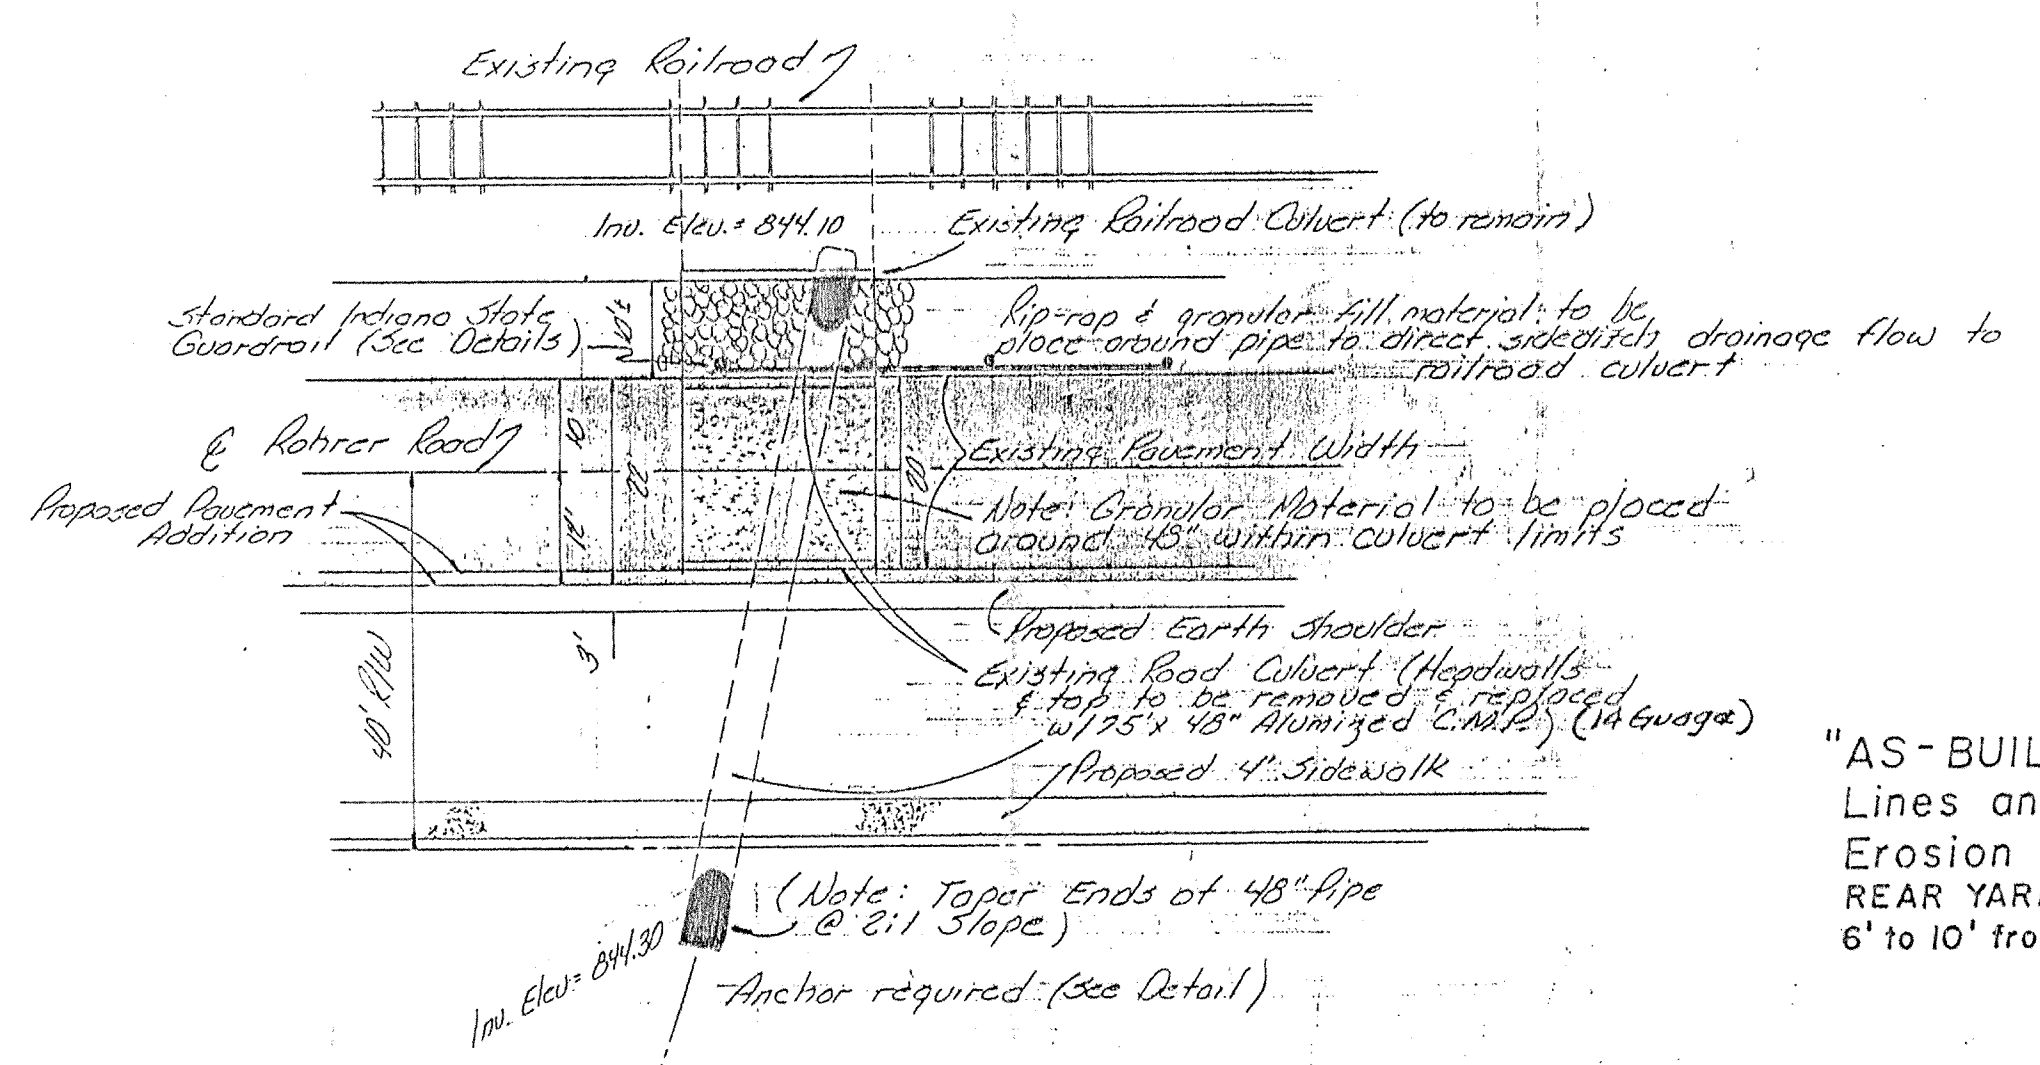 Existing Railroad
Inv. Elev.= 844.10
Existing Railroad Culvert (to remain)
Standard Indiana State
Guardrail (See Details)
10'±
Rip-rap & granular fill material to be
place around pipe to direct sideditch drainage flow to
railroad culvert
℄ Rohrer Road
10'
22'
20'
12'
Existing Pavement Width
Proposed Pavement
Addition
Note: Granular Material to be placed
around 48" within culvert limits
Proposed Earth Shoulder
3'
40' R/W
Existing Road Culvert (Headwalls
& top to be removed & replaced
w/75'x 48" Alumized C.M.P.) (14 Guage)
Proposed 4' Sidewalk
(Note: Taper Ends of 48" Pipe
@ 2:1 Slope)
Inv. Elev= 844.30
Anchor required (See Detail)
"AS-BUIL
Lines an
Erosion
REAR YAR
6' to 10' fro